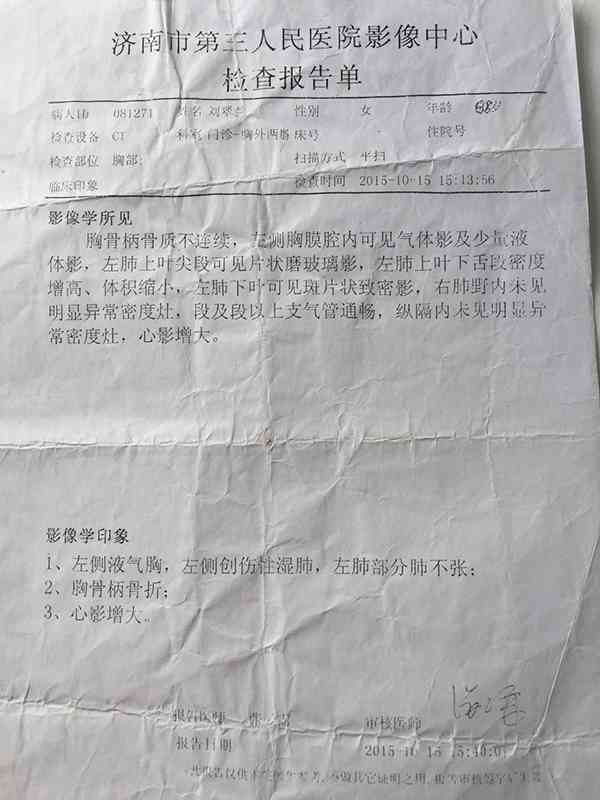 济南市第三人民医院影像中心
检查报告单
病人ID 081271 姓名 刘翠 性别 女 年龄
检查设备 CT 科室 门诊-胸外两腺 床号 住院号
检查部位 胸部; 扫描方式 平扫
临床印象 检查时间 2015-10-15 15:13:56
影像学所见
胸骨柄骨质不连续，左侧胸膜腔内可见气体影及少量液
体影，左肺上叶尖段可见片状磨玻璃影，左肺上叶下舌段密度
增高、体积缩小，左肺下叶可见斑片状致密影，右肺野内未见
明显异常密度灶，段及段以上支气管通畅，纵隔内未见明显异
常密度灶，心影增大。
影像学印象
1、左侧液气胸，左侧创伤性湿肺，左肺部分肺不张；
2、胸骨柄骨折；
3、心影增大。
报告医师 审核医师
报告日期 2015-10-15
此报告仅供